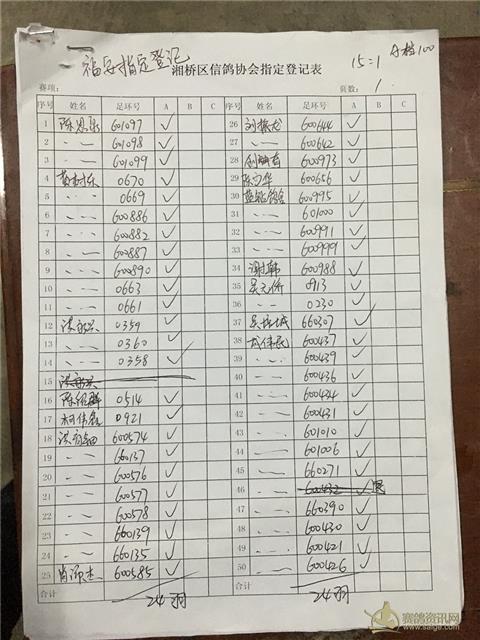 福安指定登记
湘桥区信鸽协会指定登记表
15=1
A档100
赛项: 页数: 1
序号 姓名 足环号 A B C 序号 姓名 足环号 A B C
1 601097 ✓ 26 刘振龙 600644 ✓
2 〃 601098 ✓ 27 〃 600642 ✓
3 〃 601099 ✓ 28 600973 ✓
4 0670 ✓ 29 600656 ✓
5 〃 0669 ✓ 30 600995 ✓
6 〃 600886 ✓ 31 〃 601000 ✓
7 〃 600882 ✓ 32 〃 600991 ✓
8 〃 600887 ✓ 33 〃 600999 ✓
9 〃 600890 ✓ 34 谢韩 600988 ✓
10 〃 0663 ✓ 35 0913 ✓
11 〃 0661 ✓ 36 〃 0230 ✓
12 0359 ✓ 37 660307 ✓
13 〃 0360 ✓ 38 600437 ✓
14 〃 0358 ✓ 39 〃 600439 ✓
15 40 〃 600436 ✓
16 0514 ✓ 41 〃 600434 ✓
17 柯伟铭 0921 ✓ 42 〃 600431 ✓
18 600574 ✓ 43 〃 601010 ✓
19 〃 660137 ✓ 44 〃 601006 ✓
20 〃 600576 ✓ 45 〃 660271 ✓
21 〃 600577 ✓ 46 〃 600432 ✓
22 〃 600578 ✓ 47 〃 660390 ✓
23 〃 660139 ✓ 48 〃 600430 ✓
24 〃 660135 ✓ 49 〃 600421 ✓
25 600585 ✓ 50 〃 600426 ✓
合计 24羽 合计 24羽
赛鸽资讯网
www.saige.com